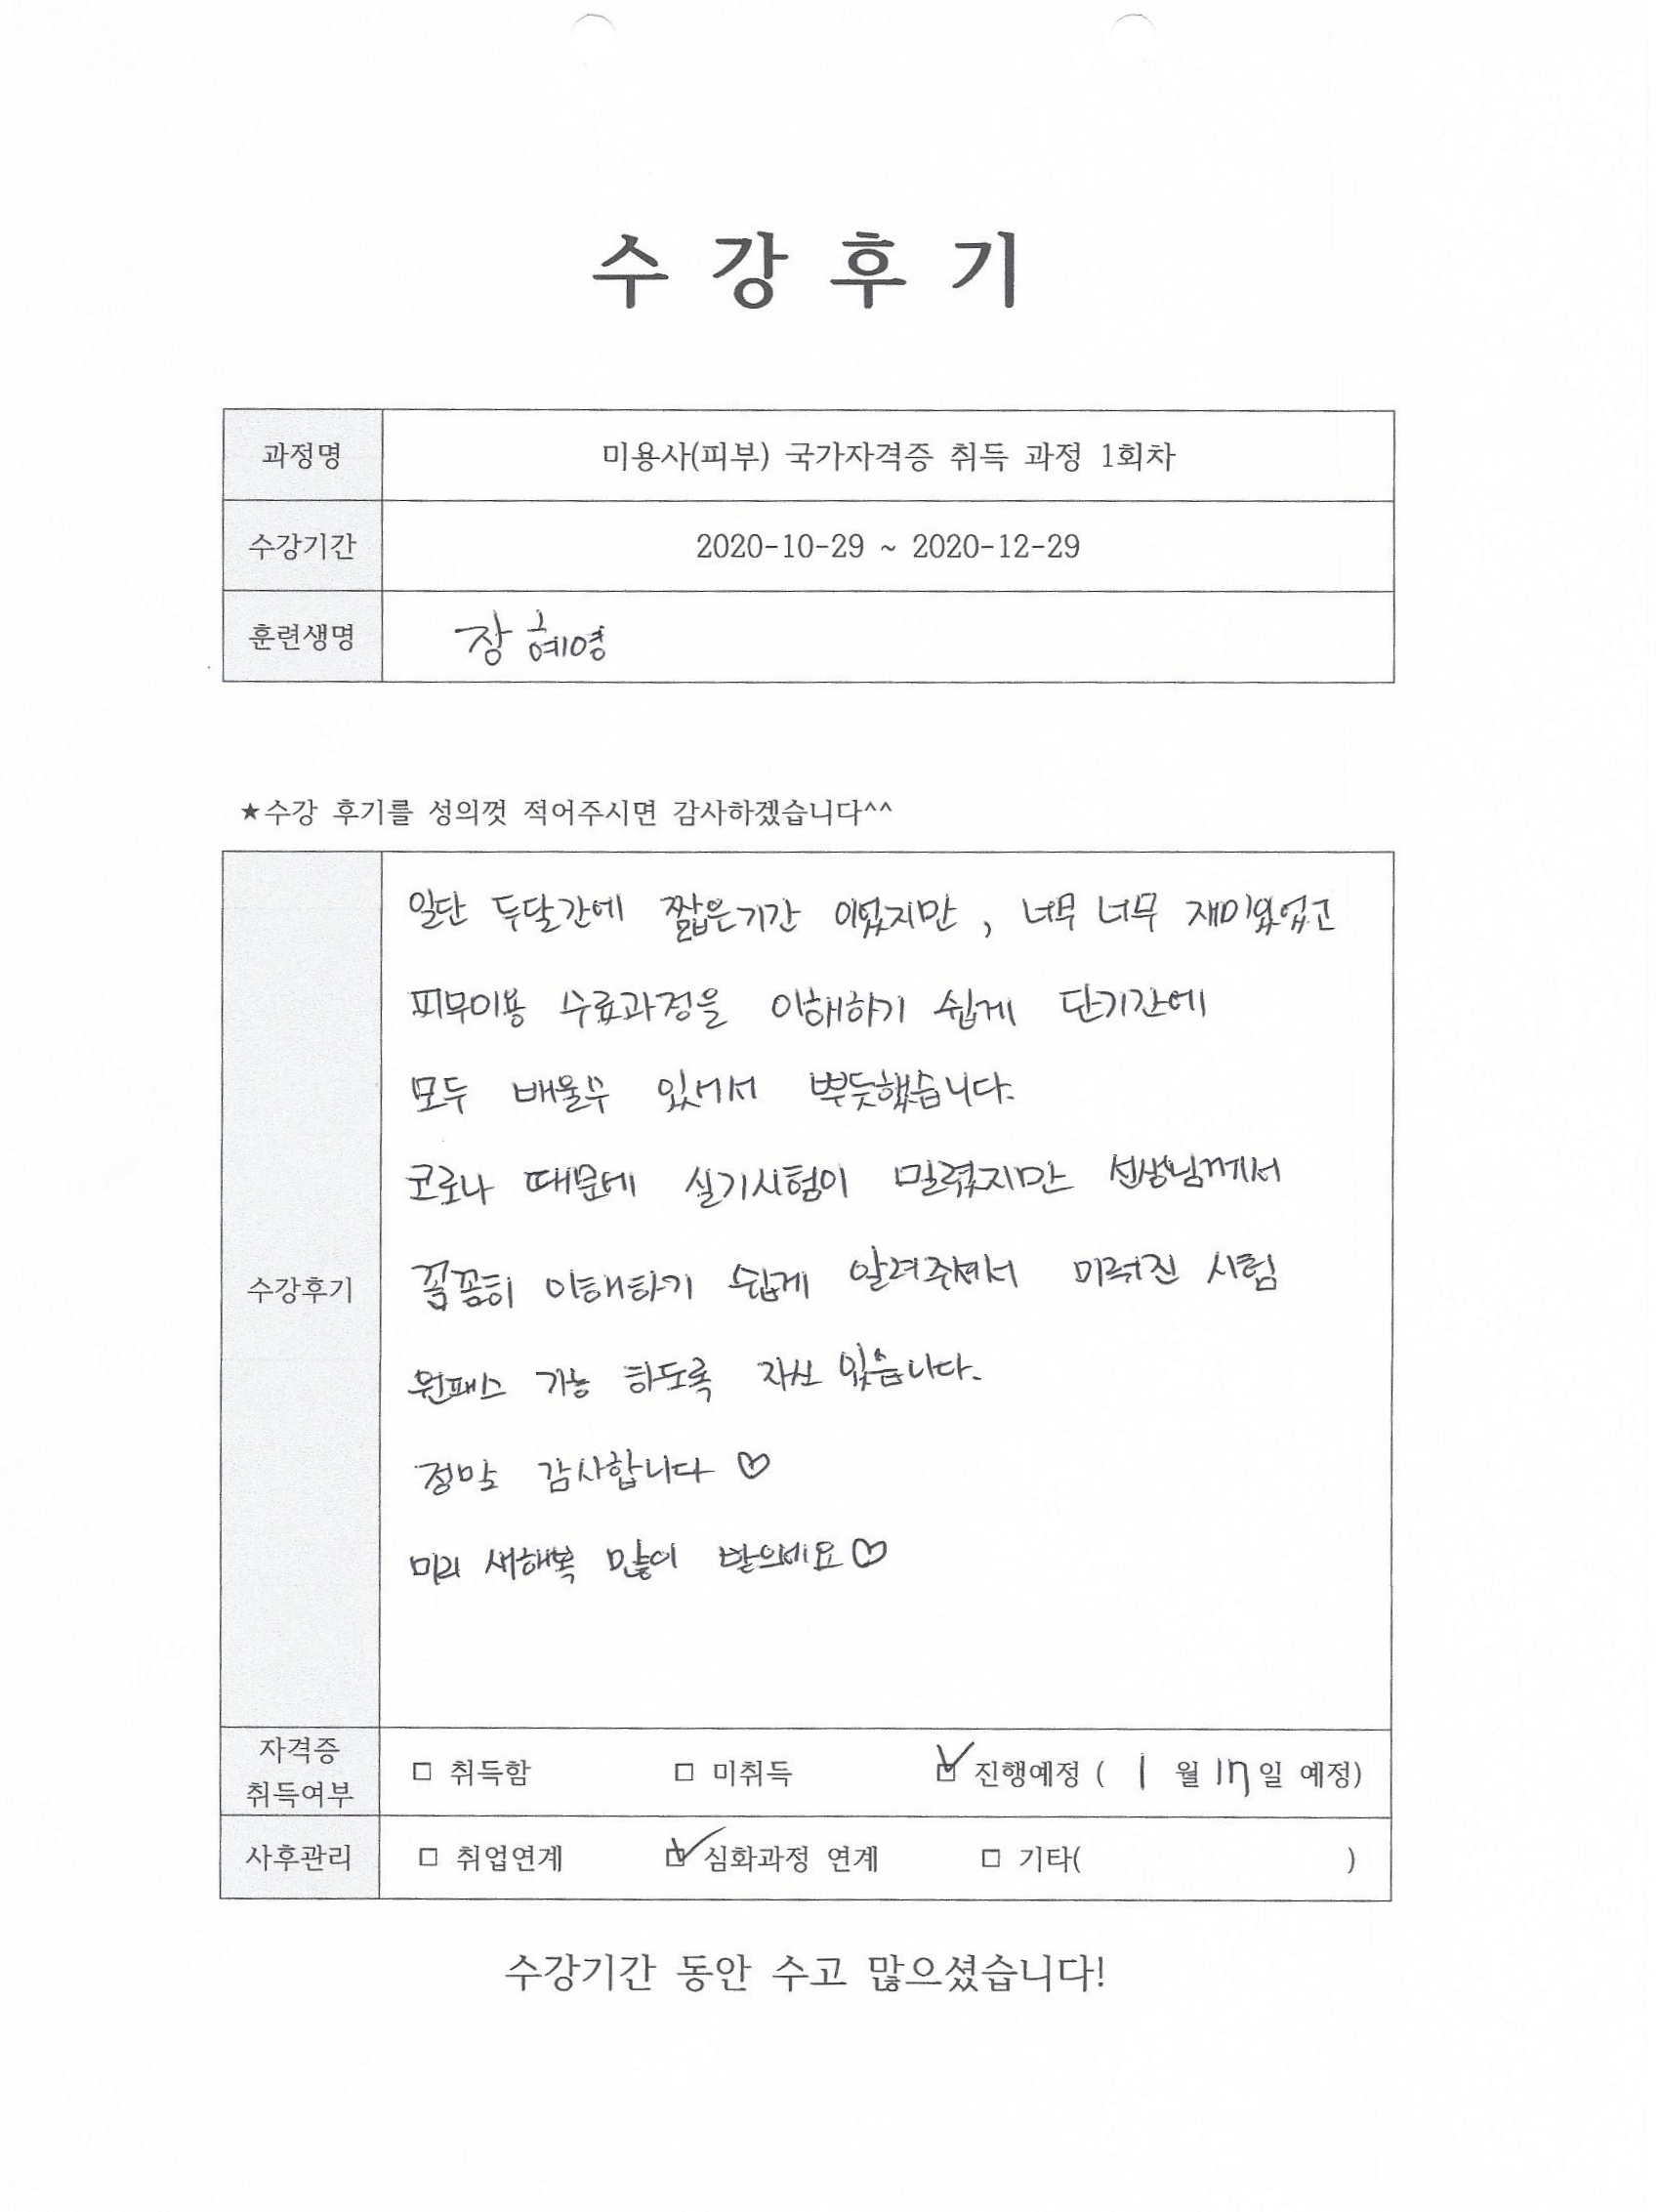 수 강 후 기
과정명 미용사(피부) 국가자격증 취득 과정 1회차
수강기간 2020-10-29 ~ 2020-12-29
훈련생명 장 혜영
★수강 후기를 성의껏 적어주시면 감사하겠습니다^^
일단 두달간에 짧은기간 이었지만, 너무 너무 재미있었고
피부미용 수료과정을 이해하기 쉽게 단기간에
모두 배울수 있어서 뿌듯했습니다.
코로나 때문에 실기시험이 밀렸지만 선생님께서
수강후기
꼼꼼히 이해하기 쉽게 알려주셔서 미뤄진 시험
원패스 가능 하도록 자신 있습니다.
정말 감사합니다 ♡
미리 새해복 많이 받으세요♡
자격증
취득여부
□ 취득함 □ 미취득 ☑ 진행예정 ( 1 월 17 일 예정)
사후관리 □ 취업연계 ☑ 심화과정 연계 □ 기타( )
수강기간 동안 수고 많으셨습니다!